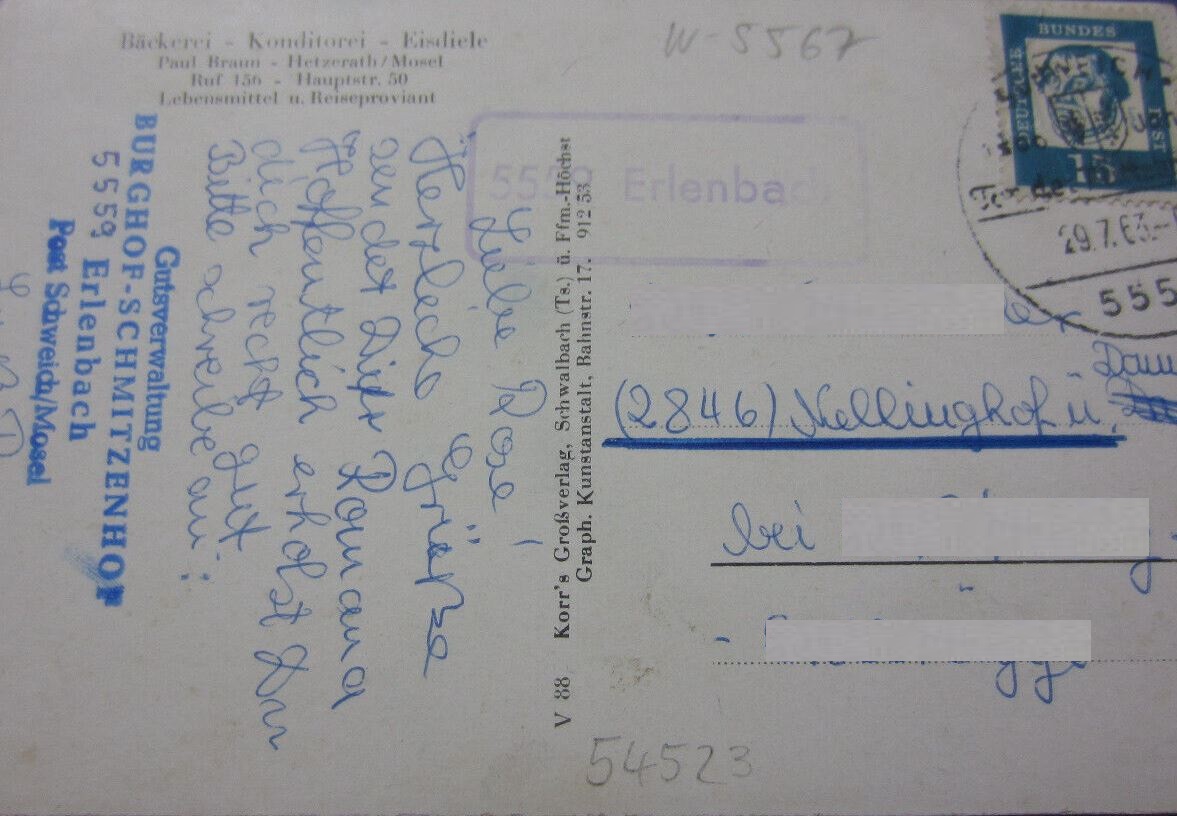 Bäckerei - Konditorei - Eisdiele
Paul Braun - Hetzerath/Mosel
Ruf 156 - Hauptstr. 50
Lebensmittel u. Reiseproviant
W-5567
DEUTSCHE BUNDESPOST
15
29.7.63
555
5559 Erlenbach
Liebe
Herzliche Grüße
sendet Dir Romana
Hoffentlich erholst Du
dich recht gut
Bitte schreibe an:
Gutsverwaltung
BURGHOF-SCHMITZENHOF
5559 Erlenbach
Post Schweich/Mosel
V 88 Korr's Großverlag, Schwalbach (Ts.) ü. Ffm.-Höchst
Graph. Kunstanstalt, Bahnstr. 17. 912 53
(2846) Nellinghof ü.
bei
54523